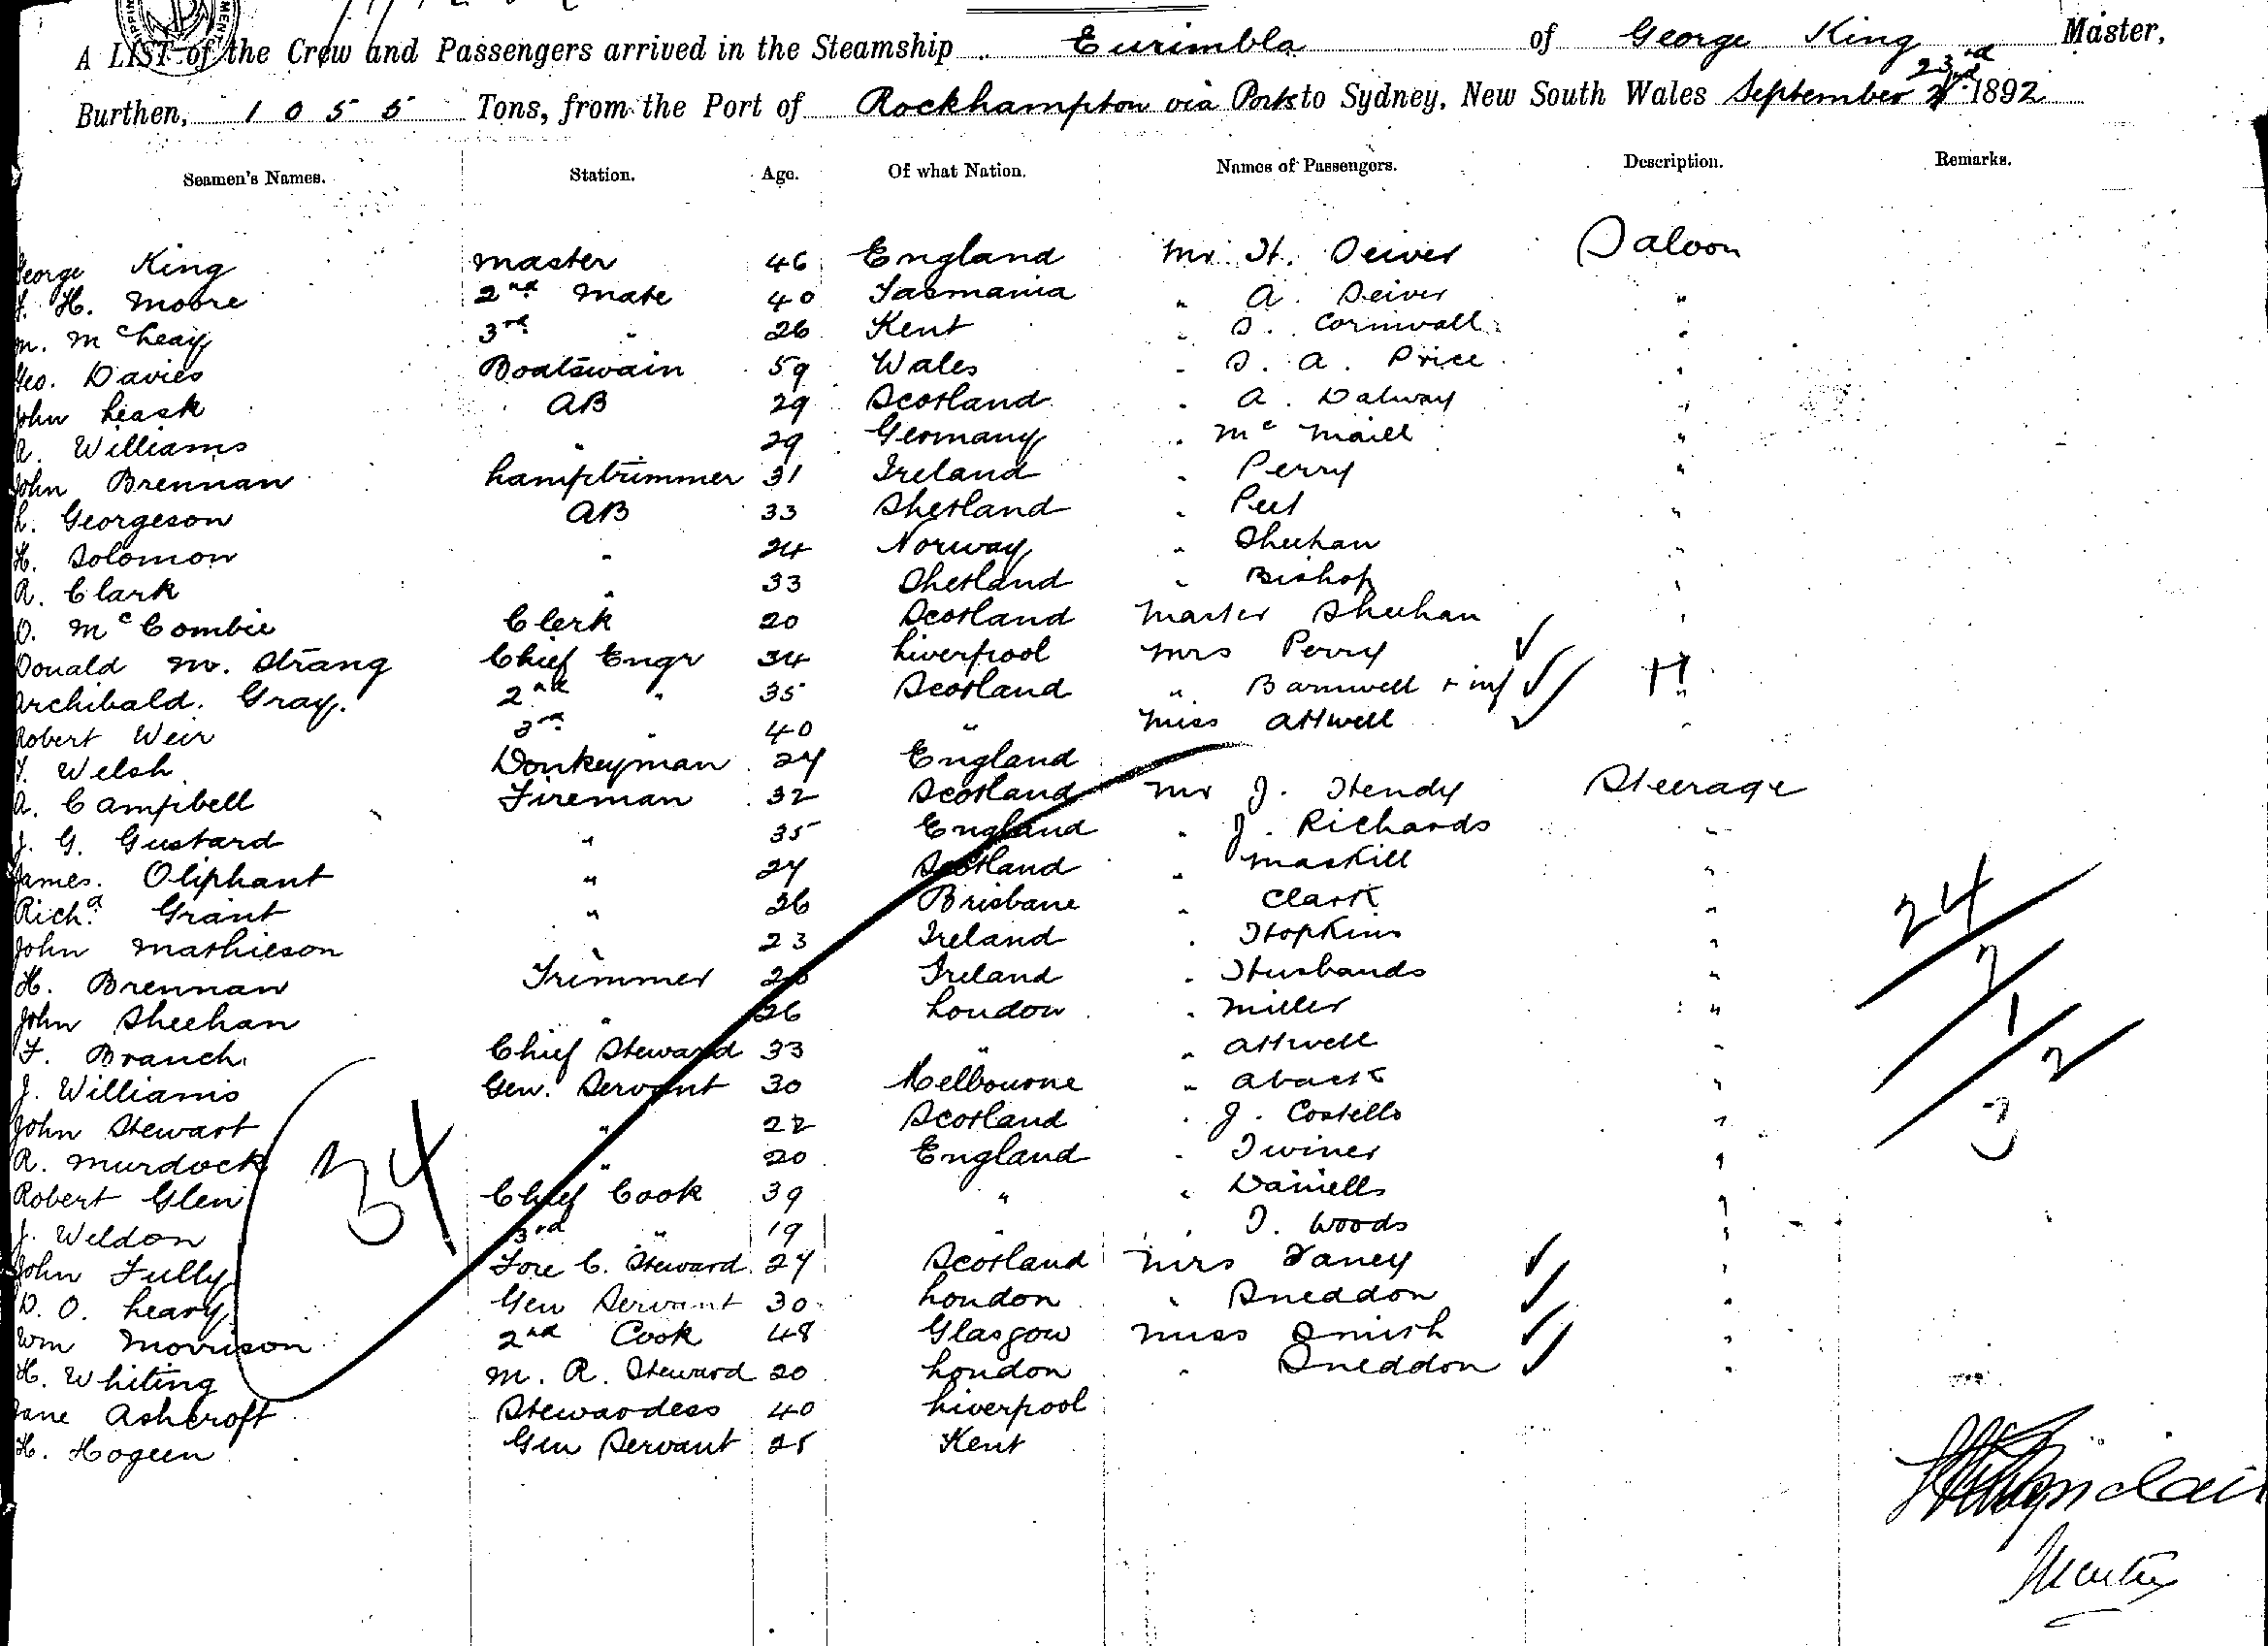 A LIST of the Crew and Passengers arrived in the Steamship Eurimbla of George King Master,
23rd
Burthen, 1055 Tons, from the Port of Rockhampton via Ports to Sydney, New South Wales September 1892
Seamen's Names. Station. Age. Of what Nation. Names of Passengers. Description. Remarks.
George King master 46 England Mr H. Deiver Saloon
H. Moore 2nd Mate 40 Tasmania " A. Deiver "
M. McLeay 3rd " 26 Kent " S. Cornwall "
Geo. Davies Boatswain 59 Wales " S. A. Price "
John Leask AB 29 Scotland " A. Dalway "
R. Williams " 29 Germany " Mc Maill "
John Brennan Lamptrimmer 31 Ireland " Perry "
L. Georgeson AB 33 Shetland " Peet "
H. Solomon " 24 Norway " Sheehan "
R. Clark " 33 Shetland " Bishop "
D. McCombie Clerk 20 Scotland Master Sheehan "
Donald M. Strang Chief Engr 34 Liverpool Mrs Perry
Archibald. Gray. 2nd " 35 Scotland " Barnwell + inf "
Robert Weir 3rd " 40 " Miss Attwell "
Welsh Donkeyman 24 England
A. Campbell Fireman 32 Scotland Mr J. Hendy Steerage
J. G. Gustard " 35 England " J. Richards "
James. Oliphant " 24 Scotland " Maskill "
Richd. Grant " 26 Brisbane " Clark "
John Mathieson " 23 Ireland " Hopkins "
H. Brennan Trimmer Ireland " Husbands "
John Sheehan " 26 London " Miller "
F. Branch Chief Steward 33 " " Attwell "
J. Williams Gen. Servant 30 Melbourne " "
John Stewart " 22 Scotland " J. Costello "
R. Murdock " 20 England " Twiner "
Robert Glen Chief Cook 39 " " Daniells "
J. Weldon 3rd " 19 " " T. Woods "
John Tully Fore C. Steward 24 Scotland Mrs Taney "
D. O. Leary Gen Servant 30 London " Sneddon "
Wm Morrison 2nd Cook 48 Glasgow Miss Smith "
H. Whiting M. R. Steward 20 London " Sneddon "
Jane Ashcroft Stewardess 40 Liverpool
H. Hogeen Gen Servant 25 Kent
34
24
7
1
2